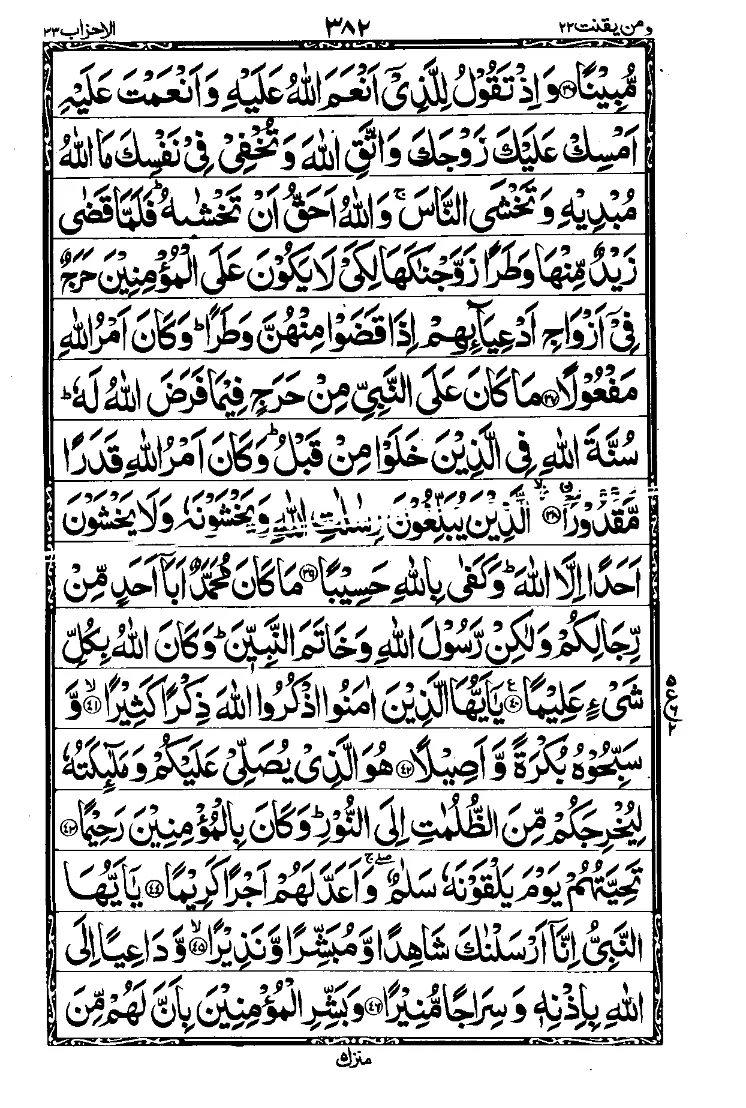 ومن يقنت ٢٢ ٣٨٢ الاحزاب ٣٣
مُّبِيْنًا ﴿٣٦﴾ وَاِذْ تَقُوْلُ لِلَّذِيْٓ اَنْعَمَ اللّٰهُ عَلَيْهِ وَاَنْعَمْتَ عَلَيْهِ
اَمْسِكْ عَلَيْكَ زَوْجَكَ وَاتَّقِ اللّٰهَ وَتُخْفِيْ فِيْ نَفْسِكَ مَا اللّٰهُ
مُبْدِيْهِ وَتَخْشَى النَّاسَ ۚ وَاللّٰهُ اَحَقُّ اَنْ تَخْشٰىهُ ؕ فَلَمَّا قَضٰى
زَيْدٌ مِّنْهَا وَطَرًا زَوَّجْنٰكَهَا لِكَيْ لَا يَكُوْنَ عَلَى الْمُؤْمِنِيْنَ حَرَجٌ
فِيْٓ اَزْوَاجِ اَدْعِيَآئِهِمْ اِذَا قَضَوْا مِنْهُنَّ وَطَرًا ؕ وَكَانَ اَمْرُ اللّٰهِ
مَفْعُوْلًا ﴿٣٧﴾ مَا كَانَ عَلَى النَّبِيِّ مِنْ حَرَجٍ فِيْمَا فَرَضَ اللّٰهُ لَهٗ ؕ
سُنَّةَ اللّٰهِ فِي الَّذِيْنَ خَلَوْا مِنْ قَبْلُ ؕ وَكَانَ اَمْرُ اللّٰهِ قَدَرًا
مَّقْدُوْرًا ﴿٣٨﴾ الَّذِيْنَ يُبَلِّغُوْنَ رِسٰلٰتِ اللّٰهِ وَيَخْشَوْنَهٗ وَلَا يَخْشَوْنَ
اَحَدًا اِلَّا اللّٰهَ ؕ وَكَفٰى بِاللّٰهِ حَسِيْبًا ﴿٣٩﴾ مَا كَانَ مُحَمَّدٌ اَبَآ اَحَدٍ مِّنْ
رِّجَالِكُمْ وَلٰكِنْ رَّسُوْلَ اللّٰهِ وَخَاتَمَ النَّبِيّٖنَ ؕ وَكَانَ اللّٰهُ بِكُلِّ
شَيْءٍ عَلِيْمًا ﴿٤٠﴾ يٰٓاَيُّهَا الَّذِيْنَ اٰمَنُوا اذْكُرُوا اللّٰهَ ذِكْرًا كَثِيْرًا ۙ﴿٤١﴾ وَّ
سَبِّحُوْهُ بُكْرَةً وَّاَصِيْلًا ﴿٤٢﴾ هُوَ الَّذِيْ يُصَلِّيْ عَلَيْكُمْ وَمَلٰٓئِكَتُهٗ
لِيُخْرِجَكُمْ مِّنَ الظُّلُمٰتِ اِلَى النُّوْرِ ؕ وَكَانَ بِالْمُؤْمِنِيْنَ رَحِيْمًا ﴿٤٣﴾
تَحِيَّتُهُمْ يَوْمَ يَلْقَوْنَهٗ سَلٰمٌ ۖۚ وَاَعَدَّ لَهُمْ اَجْرًا كَرِيْمًا ﴿٤٤﴾ يٰٓاَيُّهَا
النَّبِيُّ اِنَّآ اَرْسَلْنٰكَ شَاهِدًا وَّمُبَشِّرًا وَّنَذِيْرًا ۙ﴿٤٥﴾ وَّدَاعِيًا اِلَى
اللّٰهِ بِاِذْنِهٖ وَسِرَاجًا مُّنِيْرًا ﴿٤٦﴾ وَبَشِّرِ الْمُؤْمِنِيْنَ بِاَنَّ لَهُمْ مِّنَ
منزل ٥